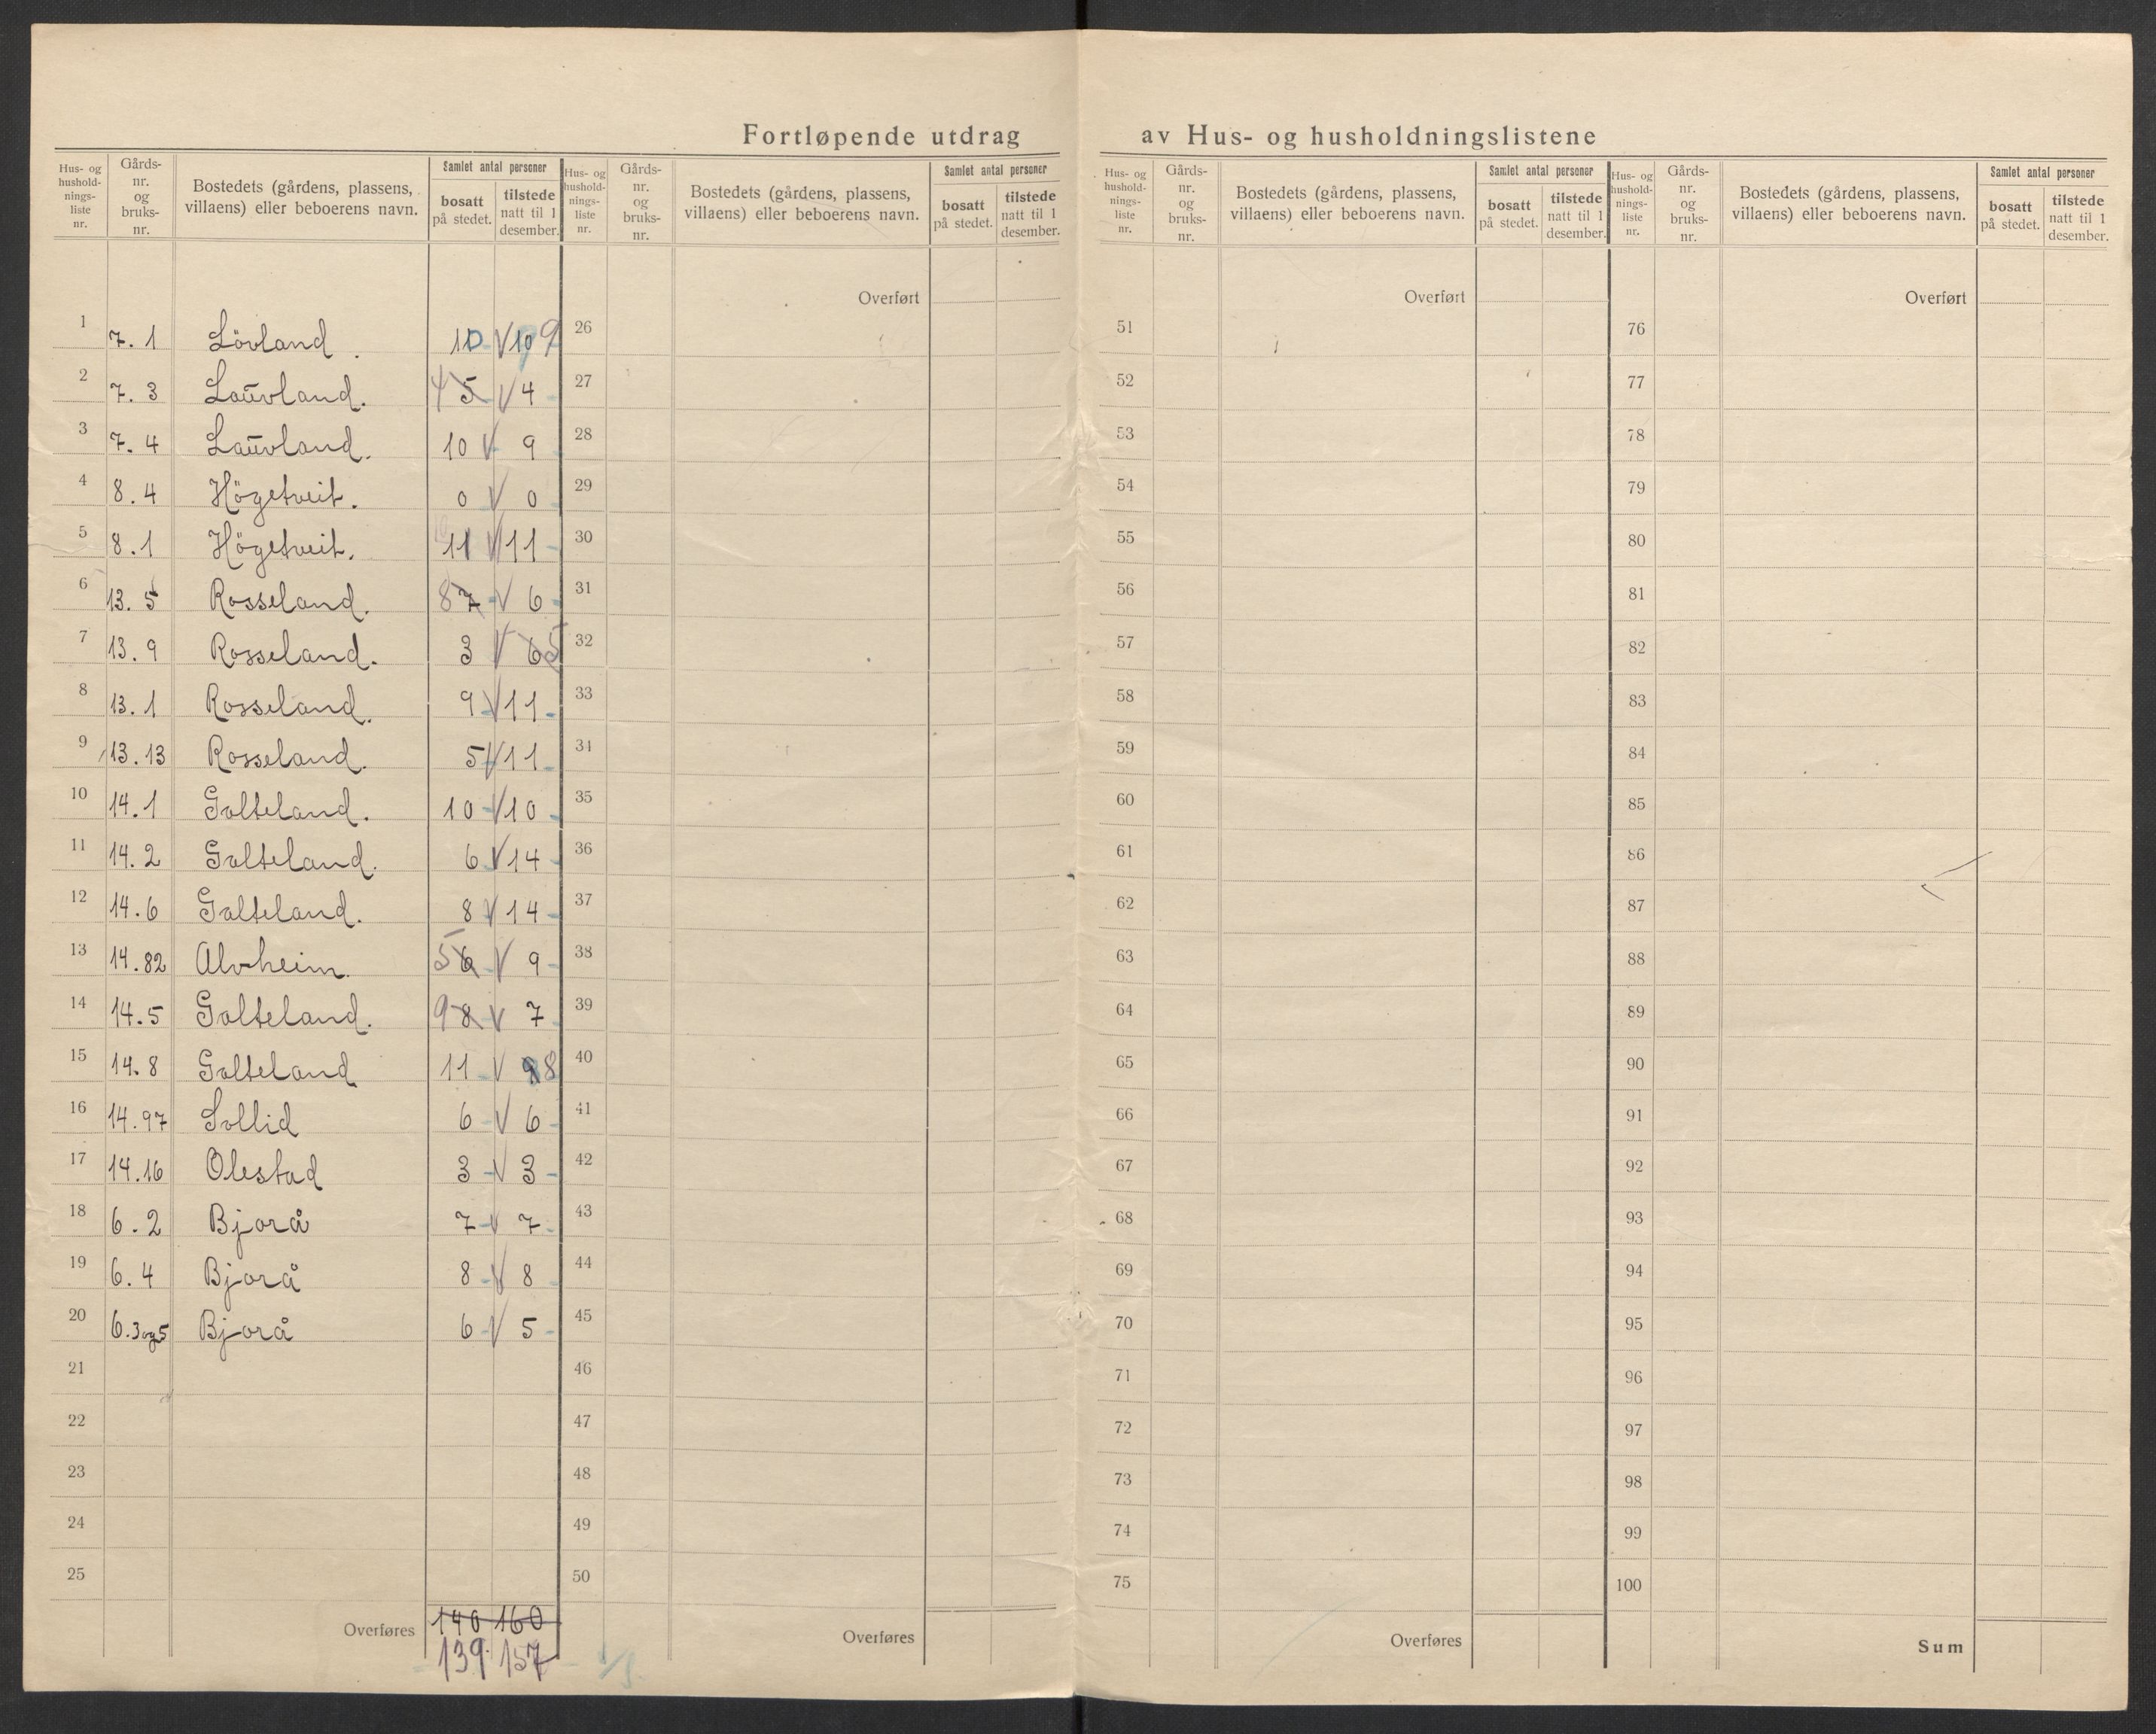 Fortløpende utdrag av Hus- og husholdningslistene
Hus- og husholdnings-liste nr. | Gårds-nr. og bruks-nr. | Bostedets (gårdens, plassens, villaens) eller beboerens navn. | Samlet antal personer | bosatt på stedet. | tilstede natt til 1 desember.
Hus- og husholdnings-liste nr. | Gårds-nr. og bruks-nr. | Bostedets (gårdens, plassens, villaens) eller beboerens navn. | Samlet antal personer | bosatt på stedet. | tilstede natt til 1 desember.
Hus- og husholdnings-liste nr. | Gårds-nr. og bruks-nr. | Bostedets (gårdens, plassens, villaens) eller beboerens navn. | Samlet antal personer | bosatt på stedet. | tilstede natt til 1 desember.
Hus- og husholdnings-liste nr. | Gårds-nr. og bruks-nr. | Bostedets (gårdens, plassens, villaens) eller beboerens navn. | Samlet antal personer | bosatt på stedet. | tilstede natt til 1 desember.
Overført Overført Overført
1 7.1 Lövland. 10 10 9 26 51 76
2 7.3 Lauvland. 4 5 4 27 52 77
3 7.4 Lauvland. 10 9 28 53 78
4 8.4 Högetveit. 0 0 29 54 79
5 8.1 Högetveit. 11 11 30 55 80
6 13.5 Rosseland. 8 7 6 31 56 81
7 13.9 Rosseland. 3 6 5 32 57 82
8 13.1 Rosseland. 9 11 33 58 83
9 13.13 Rosseland. 5 11 34 59 84
10 14.1 Galteland. 10 10 35 60 85
11 14.2 Galteland. 6 14 36 61 86
12 14.6 Galteland. 8 14 37 62 87
13 14.82 Alvheim. 5 6 9 38 63 88
14 14.5 Galteland. 9 8 7 39 64 89
15 14.8 Galteland 11 9 8 40 65 90
16 14.97 Sollid 6 6 41 66 91
17 14.16 Olestad 3 3 42 67 92
18 6.2 Bjorå 7 7 43 68 93
19 6.4 Bjorå 8 8 44 69 94
20 6.3og5 Bjorå 6 5 45 70 95
21 46 71 96
22 47 72 97
23 48 73 98
24 49 74 99
25 50 75 100
Overføres 140 160 Overføres Overføres Sum
139 157